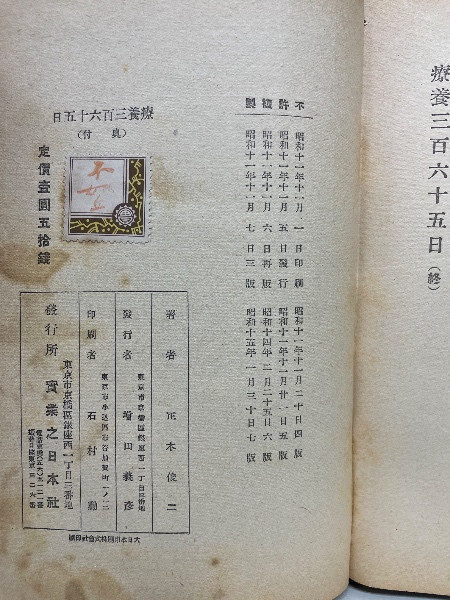 療養三百六十五日（終）
不許複製
昭和十一年十一月一日印刷
昭和十一年十一月五日發行
昭和十一年十一月六日再版
昭和十一年十一月七日三版
昭和十一年十一月二十日四版
昭和十一年十一月廿一日五版
昭和十四年二月二十五日六版
昭和十五年一月三十日七版
療養三百六十五日
（奥付）
定價壹圓五拾錢
著者 正木俊二
發行者 東京市京橋區銀座西一丁目三番地 增田義彦
印刷者 東京市牛込區市谷加賀町一ノ一二 石村勳
發行所 東京市京橋區銀座西一丁目三番地 實業之日本社
大日本印刷株式會社印刷